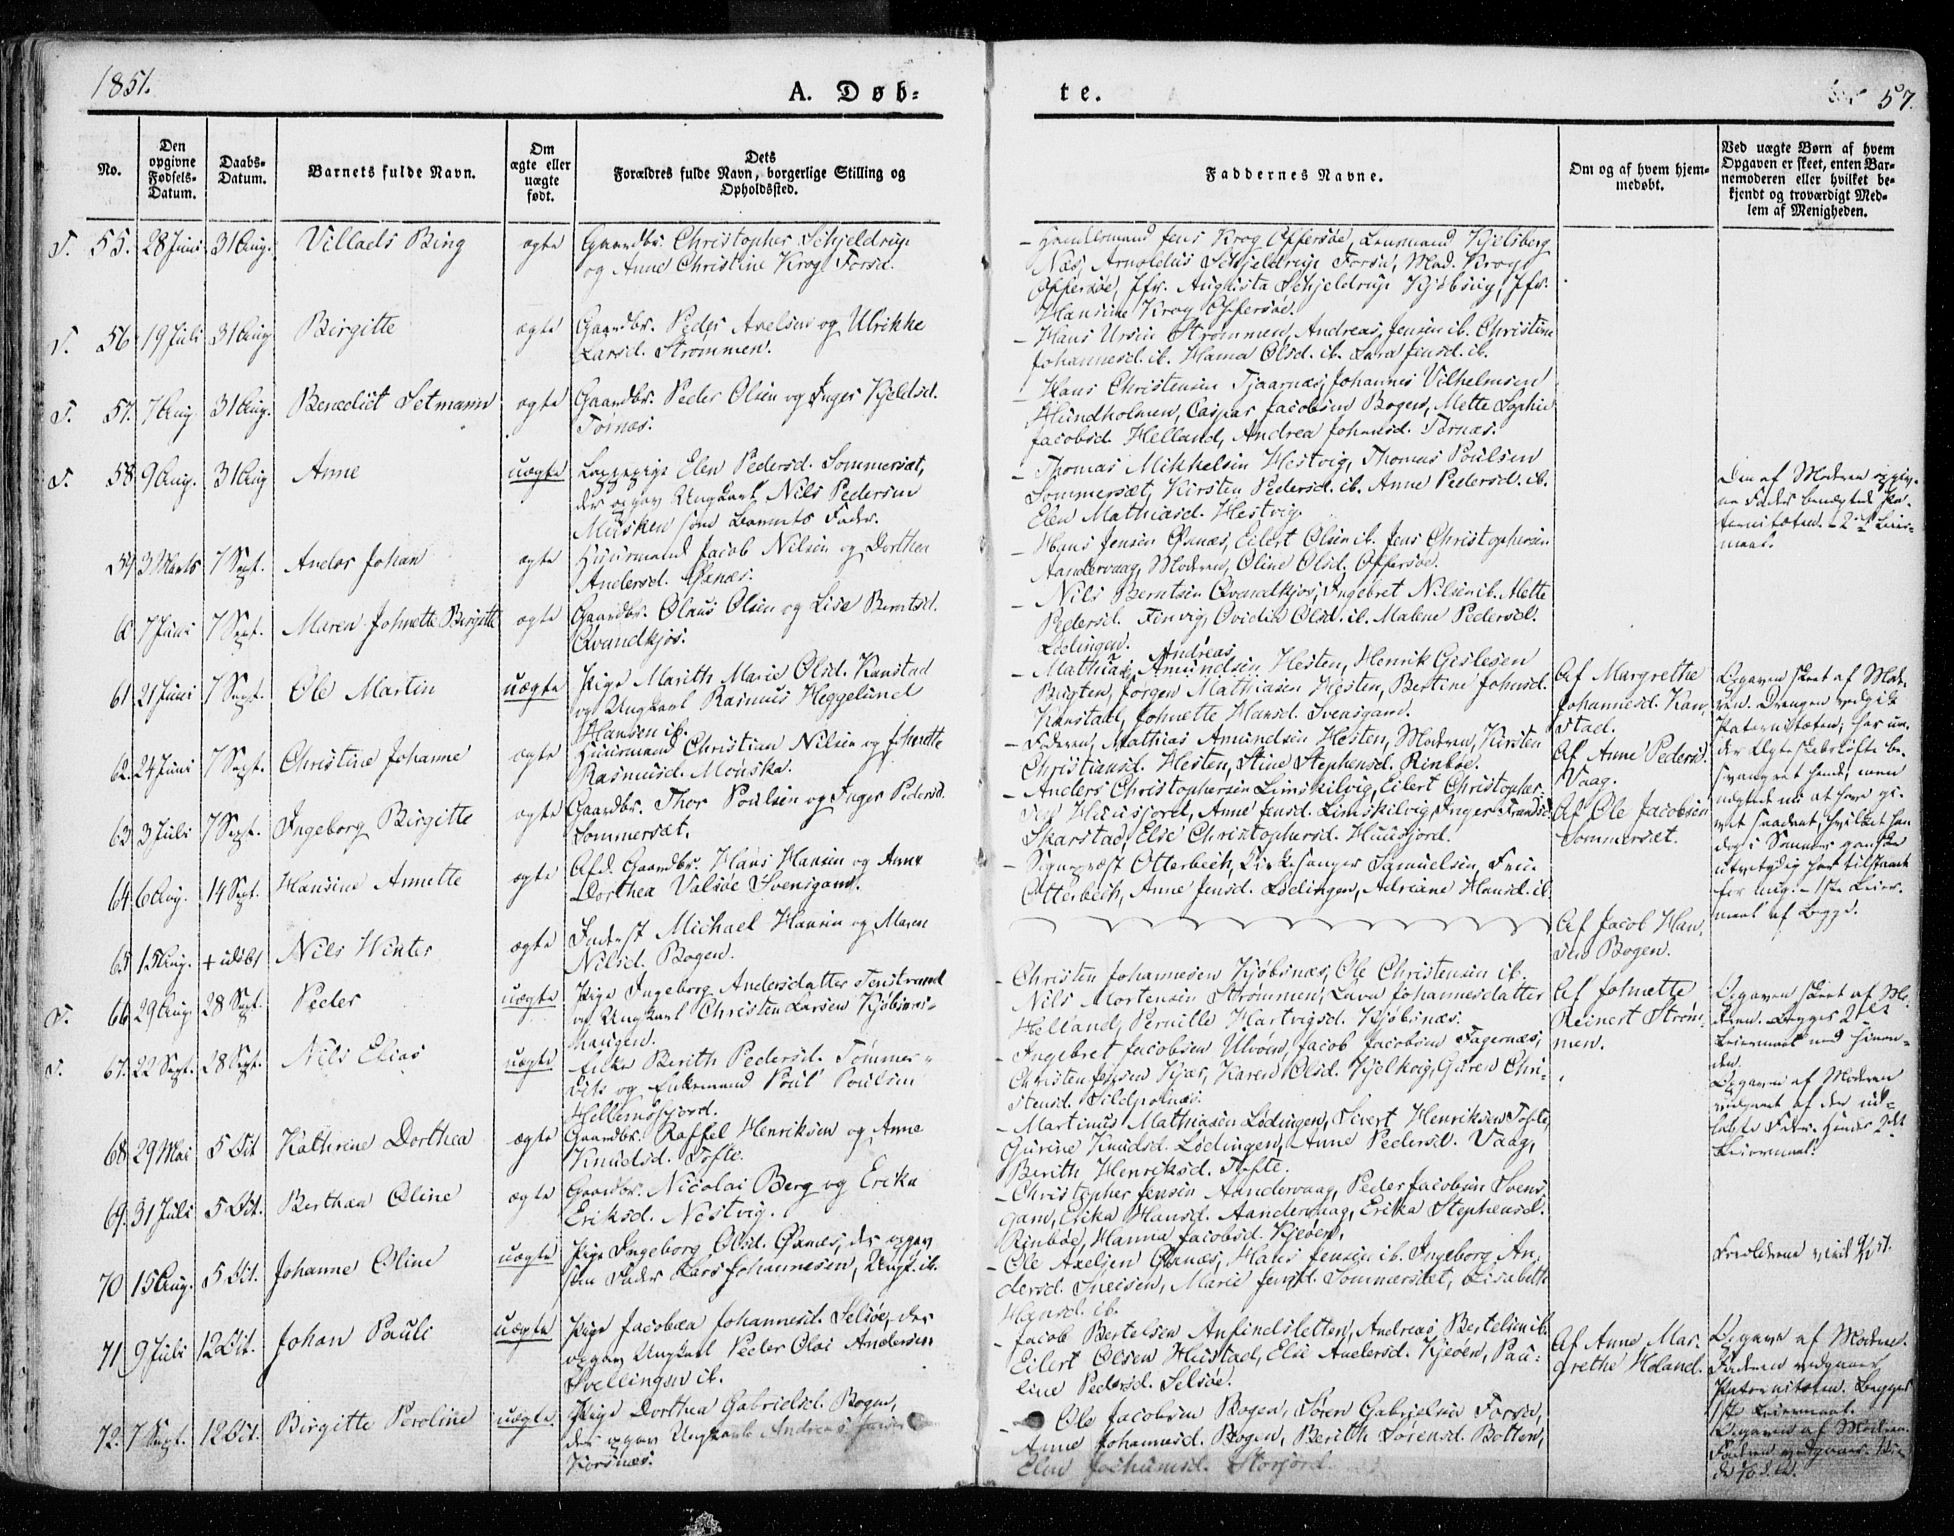 1851.
A. Døb-
te.
57.
No.
Den
opgivne
Fødsels-
Datum.
Daabs-
Datum.
Barnets fulde Navn.
Om
ægte eller
uægte
født.
Dets
Forældres fulde Navn, borgerlige Stilling og
Opholdssted.
Faddernes Navne.
Om og af hvem hjem-
medøbt.
Ved uægte Børn af hvem
Opgaven er skeet, enten Bar-
nemoderen eller hvilket be-
kjendt og troværdigt Med-
lem af Menigheden.
55. 28 Juni 31 Aug. Villads Bing ægte Gaardbr. Christopher Schjeldrup
og Anne Christine Krog Forså.
Handelsmand Jens Krog Offersøe, Lensmand Kjelsberg
Næs, Arnoldus Schjeldrup Forså, Mad. Krog
Offersøe, Jfr. Augusta Schjeldrup Kjøbsvig, Jfr.
Hansine Krog Offersøe.
56 19 Juli 31 Aug. Birgitte ægte Gaardbr. Peder Axelsen og Ulrikke
Larsd. Strømmen.
Hans Ursin Strømmen, Andreas Jensen ib. Christine
Johannesd. ib. Hanna Olsd. ib. Lava Jensd. ib.
57. 7 Aug. 31 Aug. Benedict Setmann ægte Gaardbr. Peder Olsen og Inger Kjeldsd.
Tornæs.
Hans Christensen Tjaarnæs, Johannes Vilhelmsen
Hundholmen, Caspar Jacobsen Bogen, Mette Sophie
Jacobsd. Helland, Andrea Johansd. Tornæs.
58 9 Aug. 31 Aug Anne uægte Lappepige Elen Pedersd. Sommersæt,
der opgav Ungkarl Nils Pedersen
Musken som Barnets Fader.
Thomas Mikkelsen Hestvig, Thomas Poulsen
Sommersæt, Kirsten Pedersd. ib. Anne Pedersd. ib.
Elen Mathiasd. Hestvig.
Den af Moderen opgiv-
ne Fader benægtede Pa-
terniteten. 2det Leier-
maal.
59 3 Marts 7 Sept. Andor Johan ægte Huusmand Jacob Nilsen og Dorthea
Andersd. Øxnæs.
Hans Jensen Øxnæs, Eilert Olsen ib. Jens Christophersen
Aandervaag, Moderen, Oline Olsd. Offersøe.
60 7 Juni 7 Sept. Maren Johnette Birgitte ægte Gaardbr. Olaus Olsen og Lise Berntsd.
Qvandkjos.
Nils Berntsen Qvandkjos, Ingebret Nilsen ib. Mette
Pedersd. Finvig, Ovidia Olsd. ib. Malene Pedersd.
Lødingen.
61 21 Juni 7 Sept. Ole Martin uægte Pige Marith Marie Olsd. Kanstad
og Ungkarl Rasmus Heggelund
Hansen ib.
Andreas
Mathias Amundsen Hesten, Henrik Gislesen
Bugten, Jørgen Mathiasen Hesten, Bertine Johnsd.
Kanstad, Johnette Hansd. Svensgam.
Af Margrethe
Johannesd. Kan-
stad.
Opgaven skeet af Mode-
ren. Drengen vedgik
Paterniteten, har un-
der Ægteskabsløfte be-
svangret hende, men
nægtede nu at have gi-
vet saadant, hvilket han
dog i Sommer ganske
utvetydig har tilstaaet
for mig. 1ste Leier-
maal af begge.
62. 24 Juni 7 Sept. Christine Johanne ægte Huusmand Christian Nilsen og Johnette
Rasmusd. Monska.
Faderen, Mathias Amundsen Hesten, Moderen, Kirsten
Christiansd. Hesten, Stine Stephensd. Rinbøe.
Af Anne Pedersd.
Vaag.
63. 3 Juli 7 Sept. Ingeborg Birgitte ægte Gaardbr. Thor Poulsen og Inger Pedersd.
Sommersæt.
Anders Christophersen Limskilvig, Eilert Christopher-
sen Huusjord, Anne Jensd. Limskilvig, Inger Fransd.
Skarstad, Else Christophersd. Huusjord.
Af Ole Jacobsen
Sommersæt.
64. 6 Aug. 14 Sept. Hansine Annette ægte Afd. Gaardbr. Hans Hansen og Anne
Dorthea Valsøe Svensgam.
Sognepræst Otterbech, Kirkesanger Samuelsen, Frue
Otterbech, Anne Jensd. Lødingen, Adriane Hansd. ib.
65 15 Aug. Nils Winter ægte Inderst Michael Hansen og Maren
Nilsd. Bogen.
Af Jacob Han-
sen Bogen.
66 29 Aug. 28 Sept. Peder uægte Pige Ingeborg Andersdatter Fenstrand
og Ungkarl Christen Larsen Kjøbsnæs-
haugen.
Christen Johannesen Kjøbsnæs, Ole Christensen ib.
Nils Mortensen Strømmen, Lava Johannesdatter
Helland, Pernille Hartvigsd. Kjøbsnæs.
Af Johnette
Reinert Strøm-
men.
Opgaven skeet af Mo-
deren. Begges 2det
Leiermaal med hinan-
den.
67. 22 Sept. 28 Sept. Nils Elias uægte Enke Berith Pedersd. Tømmer-
og Enkemand Poul Poulsen
Hellemofjord.
Ingebret Jacobsen Ulvøen, Jacob Jacobsen Fagernæs,
Christen Jensen Kjær, Karen Olsd. Kjelkvig, Guren Chri-
stensd. Sildpolnæs.
Opgaven af Moderen
vedgaaet af den ud-
lagte Fader. Hendes 2det
Leiermaal.
68. 29 Mai 5 Oct. Kathrine Dorthea ægte Gaardbr. Raffel Henriksen og Anne
Knudsd. Tofte.
Martinus Mathiasen Lødingen, Sivert Henriksen Tofte,
Gurine Knudsd. Lødingen, Anne Pedersd. Vaag,
Berith Henriksd. Tofte.
69. 31 Juli 5 Oct. Berthea Oline ægte Gaardbr. Nicolai Berg og Erika
Eriksd. Nestvig.
Christopher Jensen Aandervaag, Peder Jacobsen Svens-
gam, Erika Hansd. Aandervaag, Erika Stephensd.
Rinbøe, Hanna Jacobsd. Kjeøen.
70 15 Aug. 5 Oct. Johanne Oline uægte Pige Ingeborg Olsd. Øxnæs, der opgav
som Fader Lars Johannesen, Ungk. ib.
Ole Axelsen Øxnæs, Hans Jensen ib. Ingeborg An-
dersd. Sneisen, Marie Jensd. Sommersæt, Lisabeth
Hansd. ib.
Forældrene viet
71 9 Juli 12 Oct. Johan Pauli uægte Pige Jacobea Johannesd. Selsøe, der
opgav Ungkarl Peder Olai Andersen
Svellingen ib.
Jacob Bertelsen Anfindsletten, Andreas Bertelsen ib.
Eilert Olsen Hustad, Else Andersd. Kjeøen, Pau-
line Pedersd. Selsøe.
Af Anne Mar-
grethe Holand.
Opgaven af Moderen.
Faderen vedgaaer
Paterniteten. Begges
1ste Leiermaal.
72. 7 Sept. 12 Oct. Birgitte Peroline uægte Pige Dorthea Gabrielsd. Bogen,
der opgav Ungkarl Andreas
Korsnæs.
Ole Jacobsen Bogen, Søren Gabrielsen Forså,
Anne Johannesd. Bogen, Berith Sørensd. Botten,
Elen Jochumsd. Storjord.
Opgaven af Moderen.
Faderen vedgaaer.